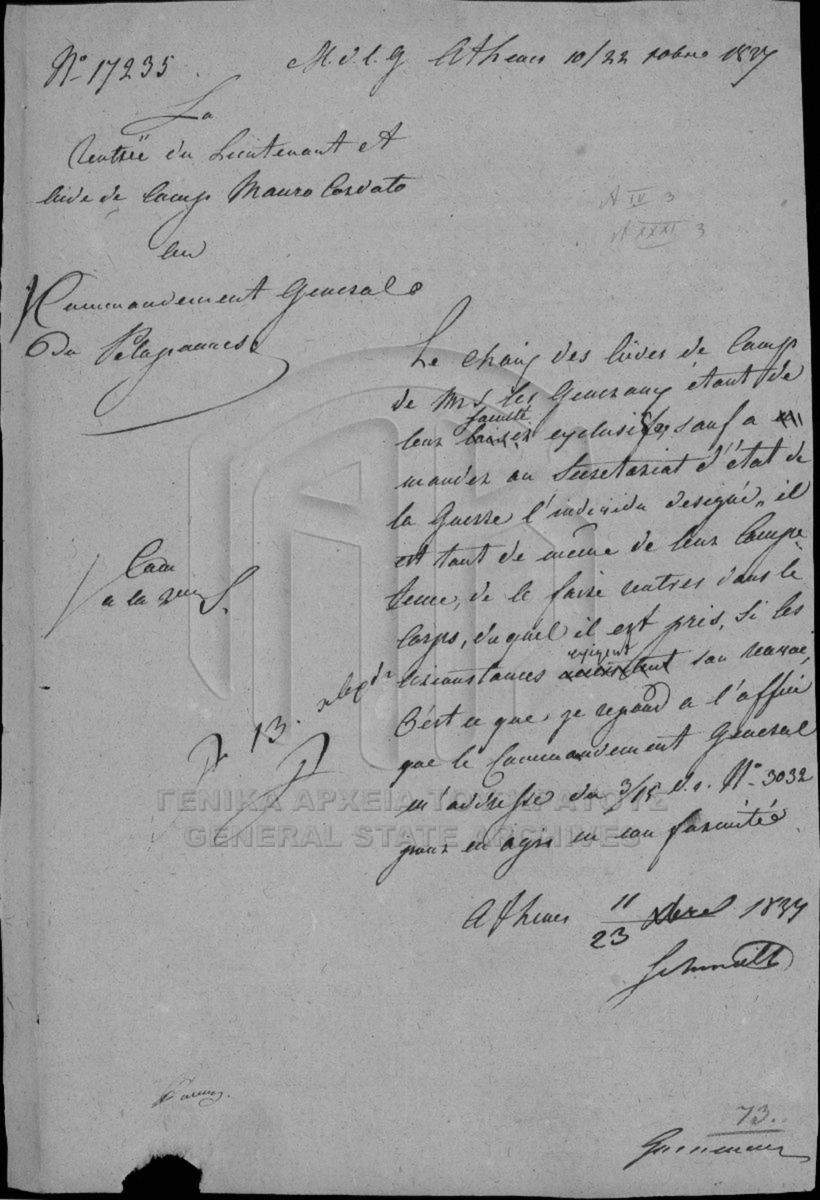 No 17235
M. d. l. G Athenes 10/22 1837
La
rentrée du Lieutenant et
Aide de Camp Mauro Cordato
au
Commandement General
du Peloponnese
A IV 3
A XXXI 3
Le choix des Aides de Camp
de Mrs les Generaux étant de
leur faculté exclusive, sauf a
mander au Secretariat d'état de
la Guerre l'individu designé, il
est tant de même de leur Compe
tence, de le faire rentrer dans le
Corps, duquel il est pris, si les
circonstances exigent son renvoi,
C'est ce que je repond a l'office
que le Commandement General
m'addresse du 3/15 d. No 3032
pour en agir en conformité.
Athenes 11/23 1837
Schmaltz
a la
S.
13.
ΓΕΝΙΚΑ ΑΡΧΕΙΑ ΤΟΥ ΚΡΑΤΟΥΣ
GENERAL STATE ARCHIVES
73.